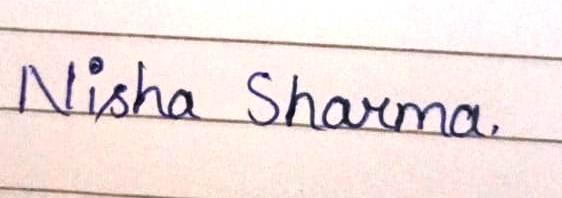 Nisha Sharma.